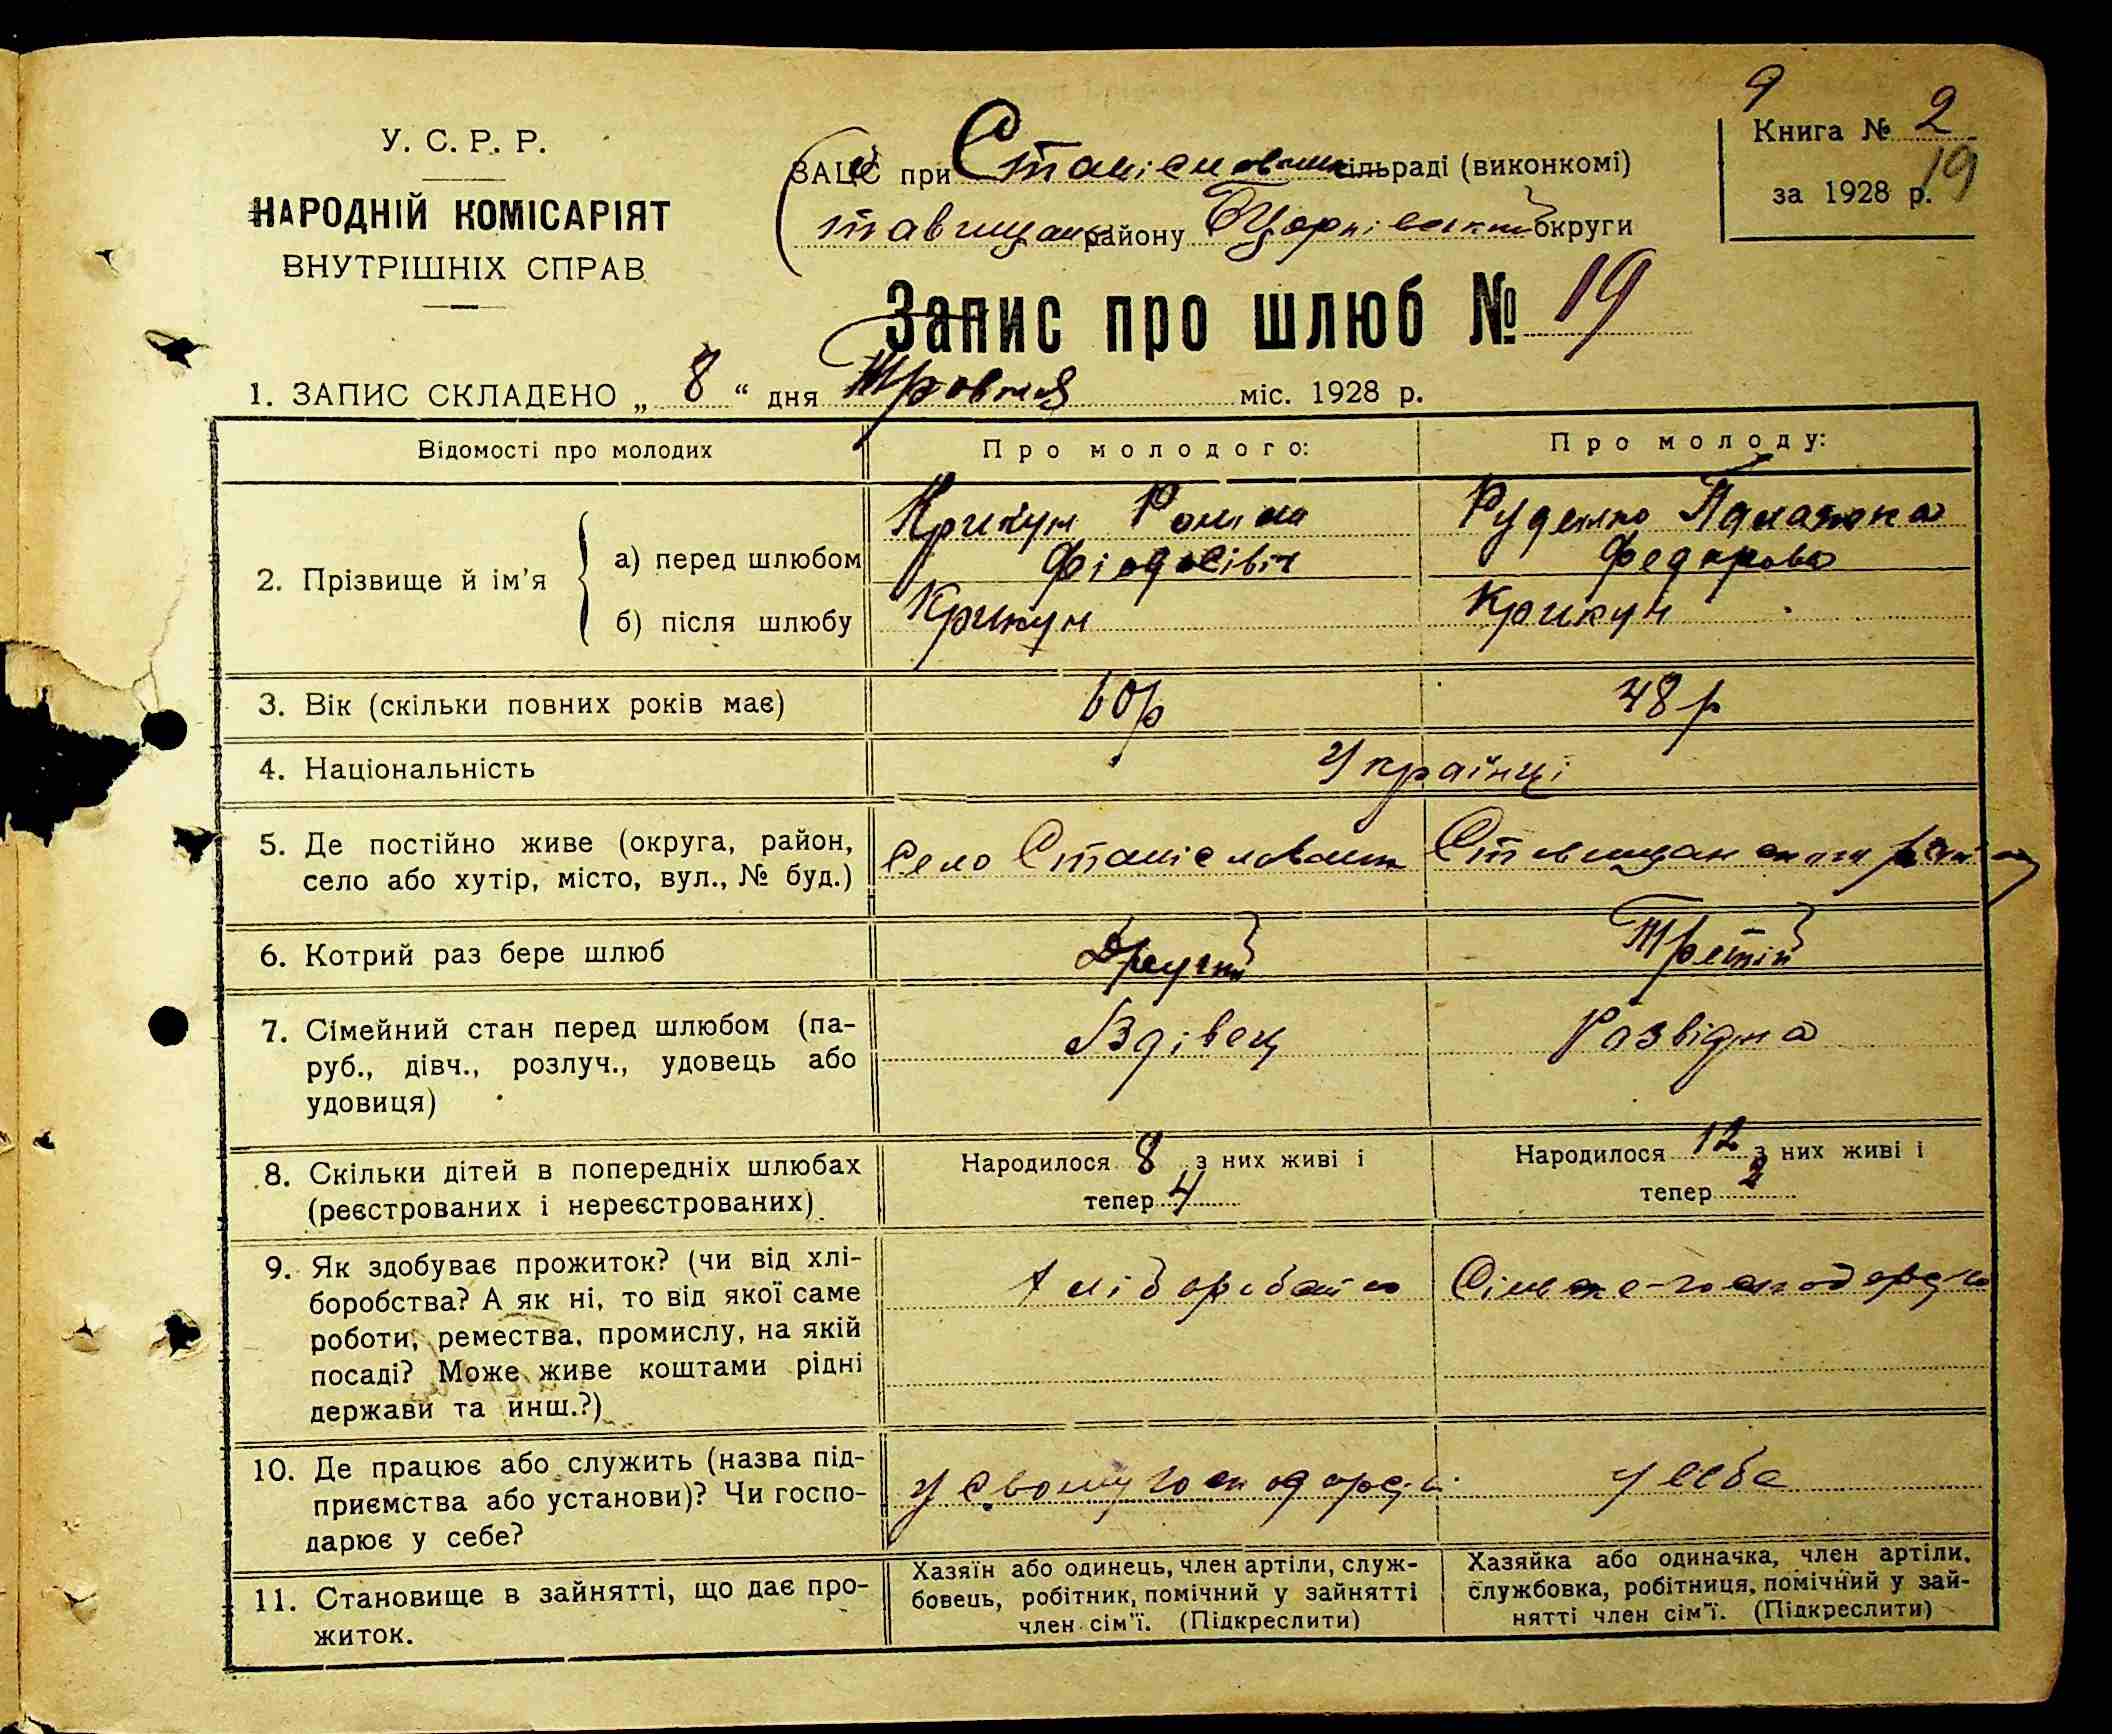 9
У. С. Р. Р.
НАРОДНІЙ КОМІСАРІЯТ
ВНУТРІШНІХ СПРАВ
ЗАЦС при сільраді (виконкомі)
району округи
Книга № 2
19
за 1928 р.
Запис про шлюб № 19
1. ЗАПИС СКЛАДЕНО „ 8 “ дня Травня міс. 1928 р.
Відомості про молодих
Про молодого:
Про молоду:
2. Прізвище й ім'я
а) перед шлюбом
Крикун
Руденко
Федорова
б) після шлюбу
Крикун
Крикун
3. Вік (скільки повних років має)
60р
48 р
4. Національність
Українці
5. Де постійно живе (округа, район,
село або хутір, місто, вул., № буд.)
село
6. Котрий раз бере шлюб
Другий
Третій
7. Сімейний стан перед шлюбом (па-
руб., дівч., розлуч., удовець або
удовиця)
Вдівец
Развідна
8. Скільки дітей в попередніх шлюбах
(реєстрованих і нереєстрованих)
Народилося 8 з них живі і
тепер 4
Народилося 12 з них живі і
тепер 2
9. Як здобуває прожиток? (чи від хлі-
боробства? А як ні, то від якої саме
роботи, ремества, промислу, на якій
посаді? Може живе коштами рідні
держави та инш.?)
10. Де працює або служить (назва під-
приємства або установи)? Чи госпо-
дарює у себе?
у свому
у себе
11. Становище в зайнятті, що дає про-
житок.
Хазяїн або одинець, член артіли, служ-
бовець, робітник, помічний у зайнятті
член сім'ї. (Підкреслити)
Хазяйка або одиначка, член артіли,
службовка, робітниця, помічний у зай-
нятті член сім'ї. (Підкреслити)